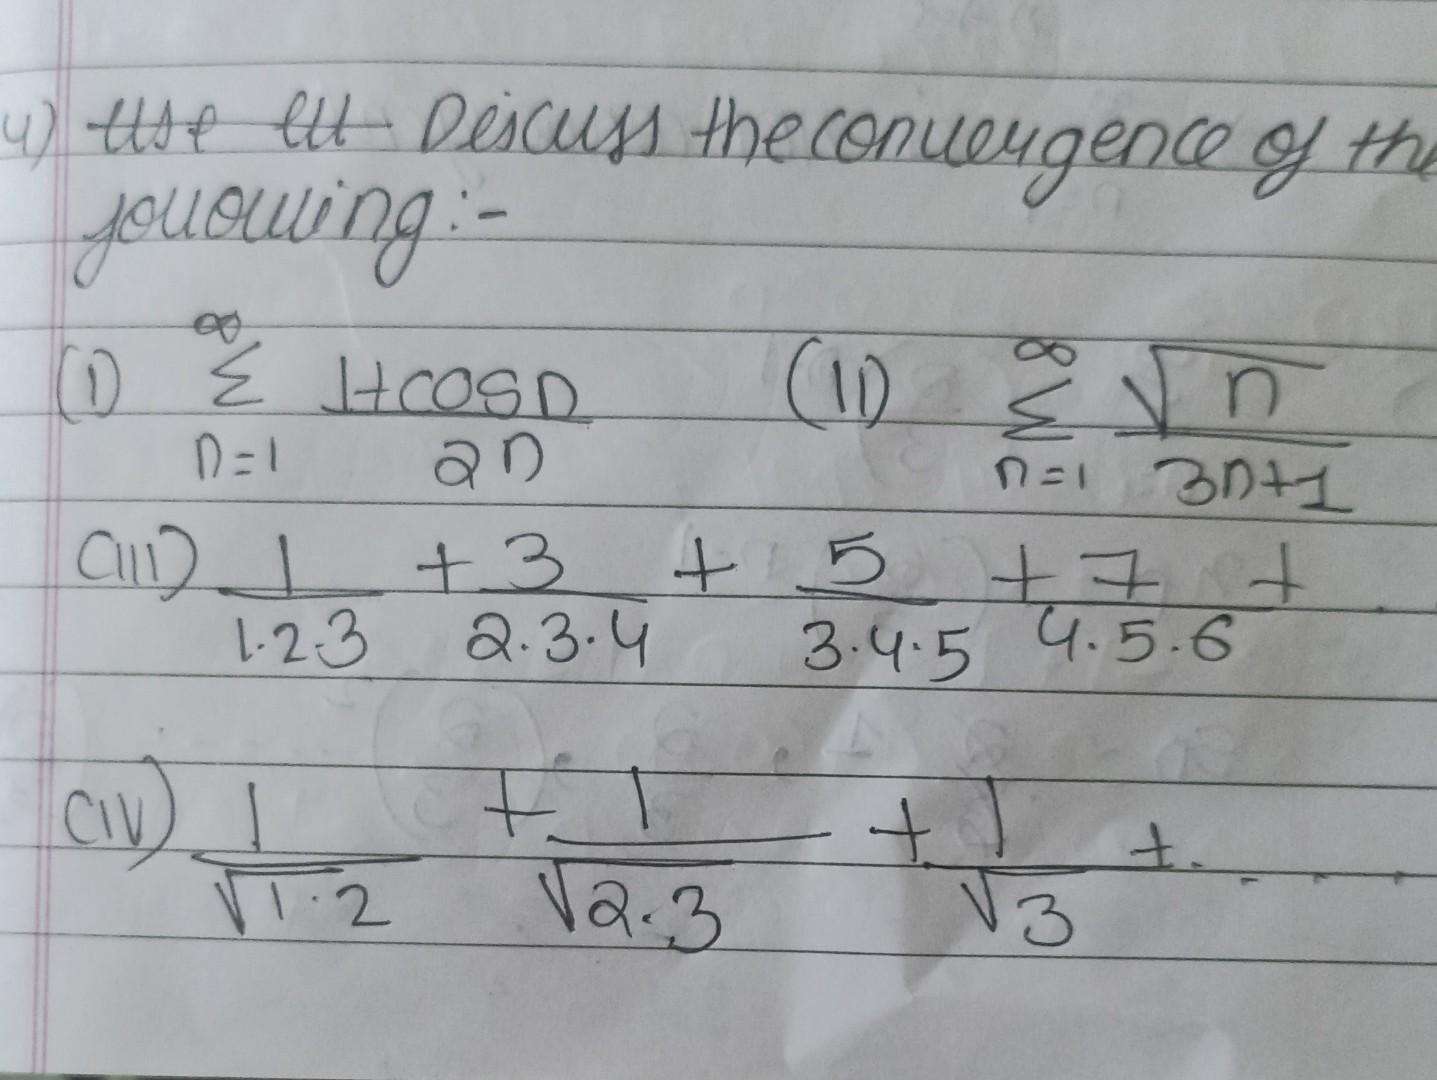 4) Use lit Discuss the convergence of the
following:-
(I) ∞ Σ n=1 1+cosn / 2n (II) ∞ Σ n=1 √n / 3n+1
(III) 1 / 1.2.3 + 3 / 2.3.4 + 5 / 3.4.5 + 7 / 4.5.6 + .
(IV) 1 / √1.2 + 1 / √2.3 + 1 / √3 + . - - -